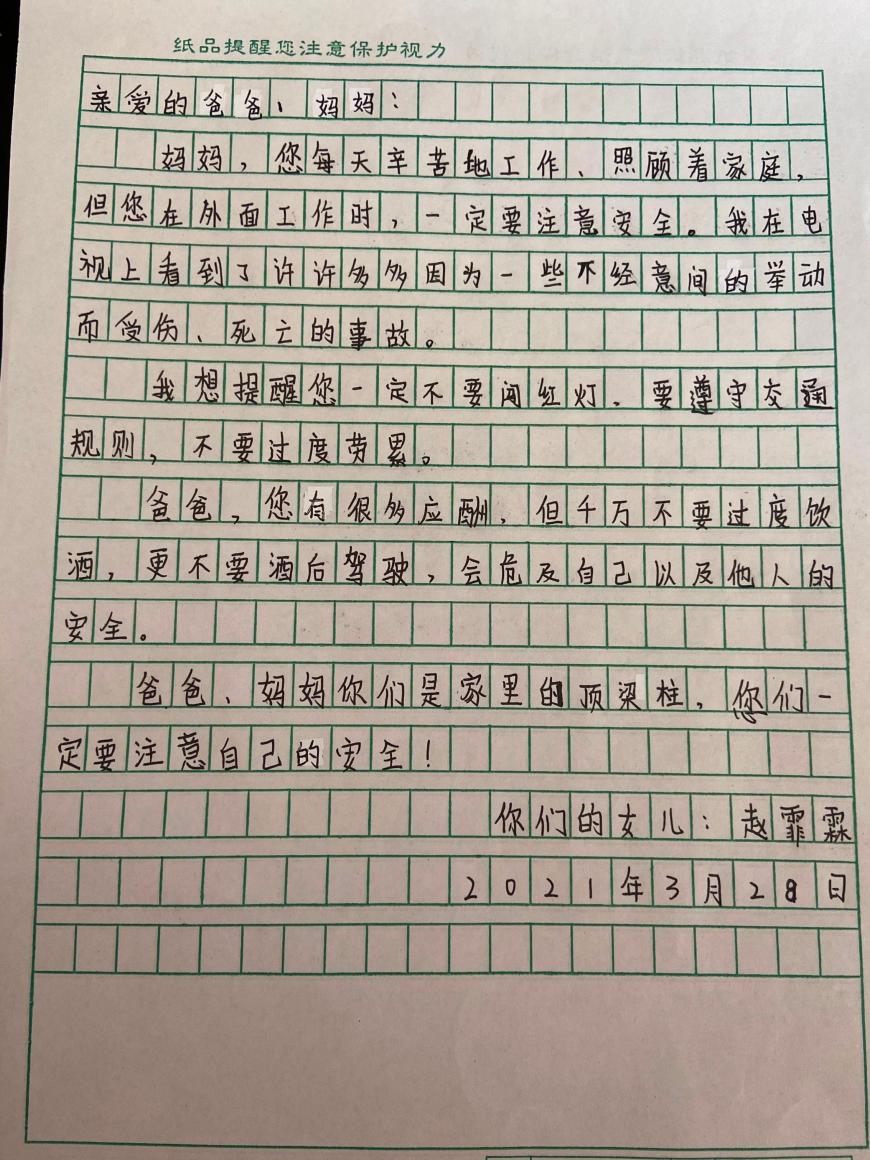 纸品提醒您注意保护视力
亲爱的爸爸、妈妈：
妈妈，您每天辛苦地工作、照顾着家庭，
但您在外面工作时，一定要注意安全。我在电
视上看到了许许多多因为一些不经意间的举动
而受伤、死亡的事故。
我想提醒您一定不要闯红灯、要遵守交通
规则，不要过度劳累。
爸爸，您有很多应酬，但千万不要过度饮
酒，更不要酒后驾驶，会危及自己以及他人的
安全。
爸爸、妈妈你们是家里的顶梁柱，您们一
定要注意自己的安全！
你们的女儿：赵霏霖
2021年3月28日